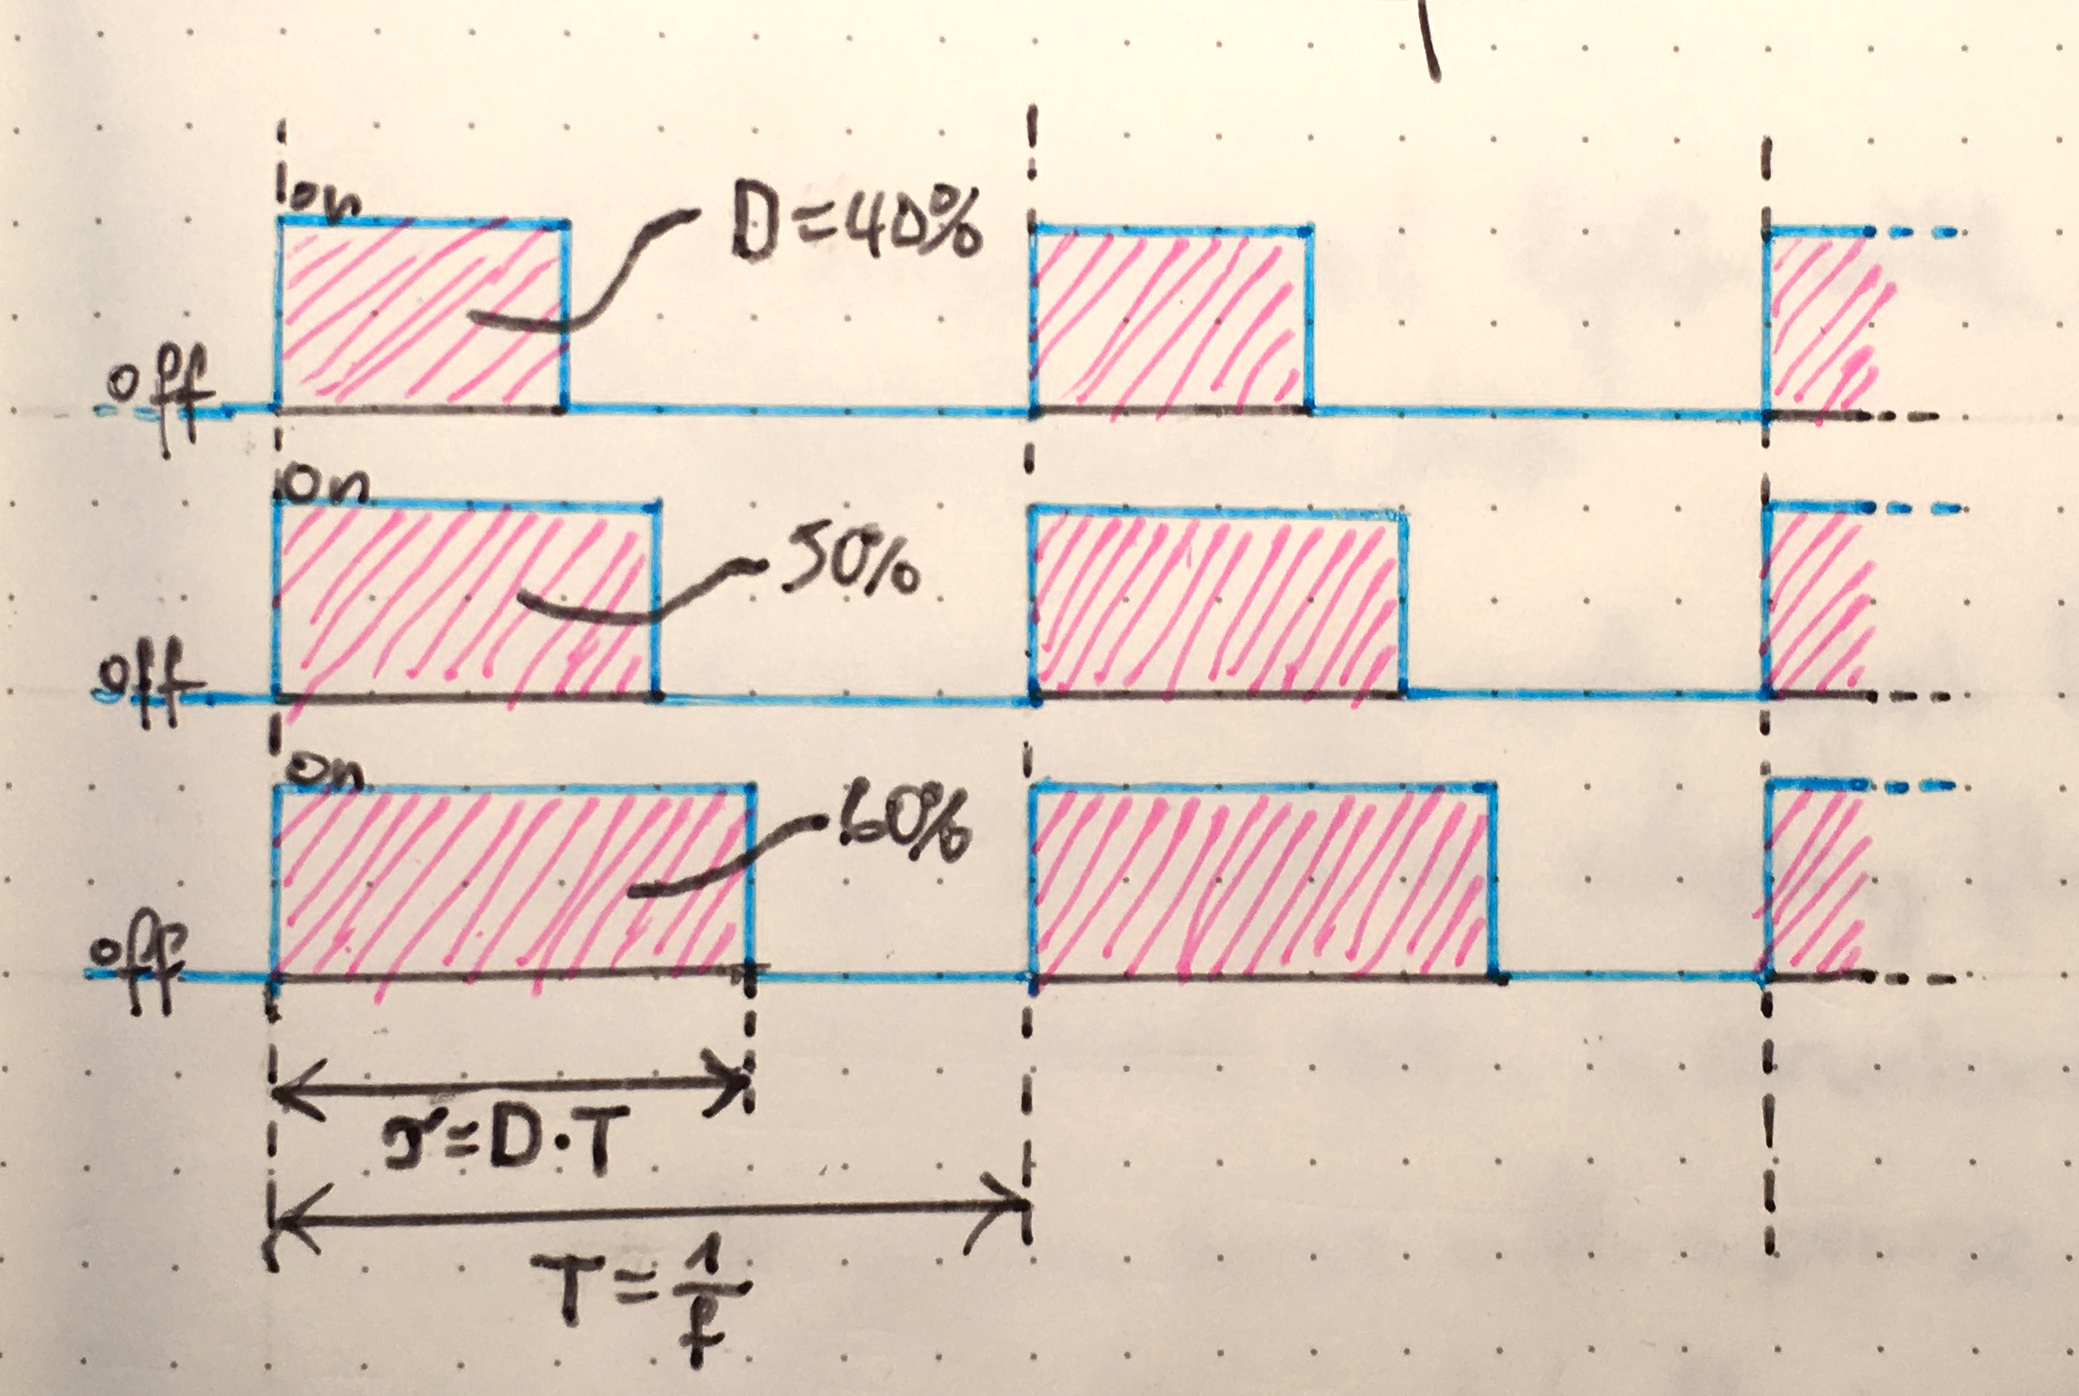 on
D=40%
off
on
50%
off
on
60%
off
𝜏=D·T
T=1/f